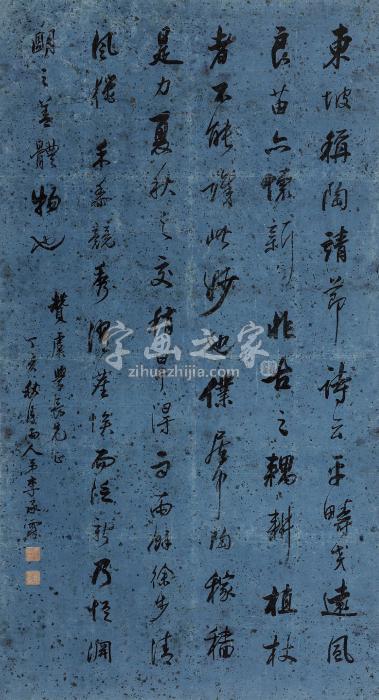 東坡稱陶靖節詩云平疇交遠風
良苗亦懷新非古之耦耕植杖
者不能識此妙也僕居中陶稼穡
是力夏秋之交稍旱得雨雨餘徐步清
風獵禾黍競秀濯塵埃而泛新乃悟淵
明之善體物也
贊虞學長兄正
丁亥秋月
字画之家
zihuazhijia.com